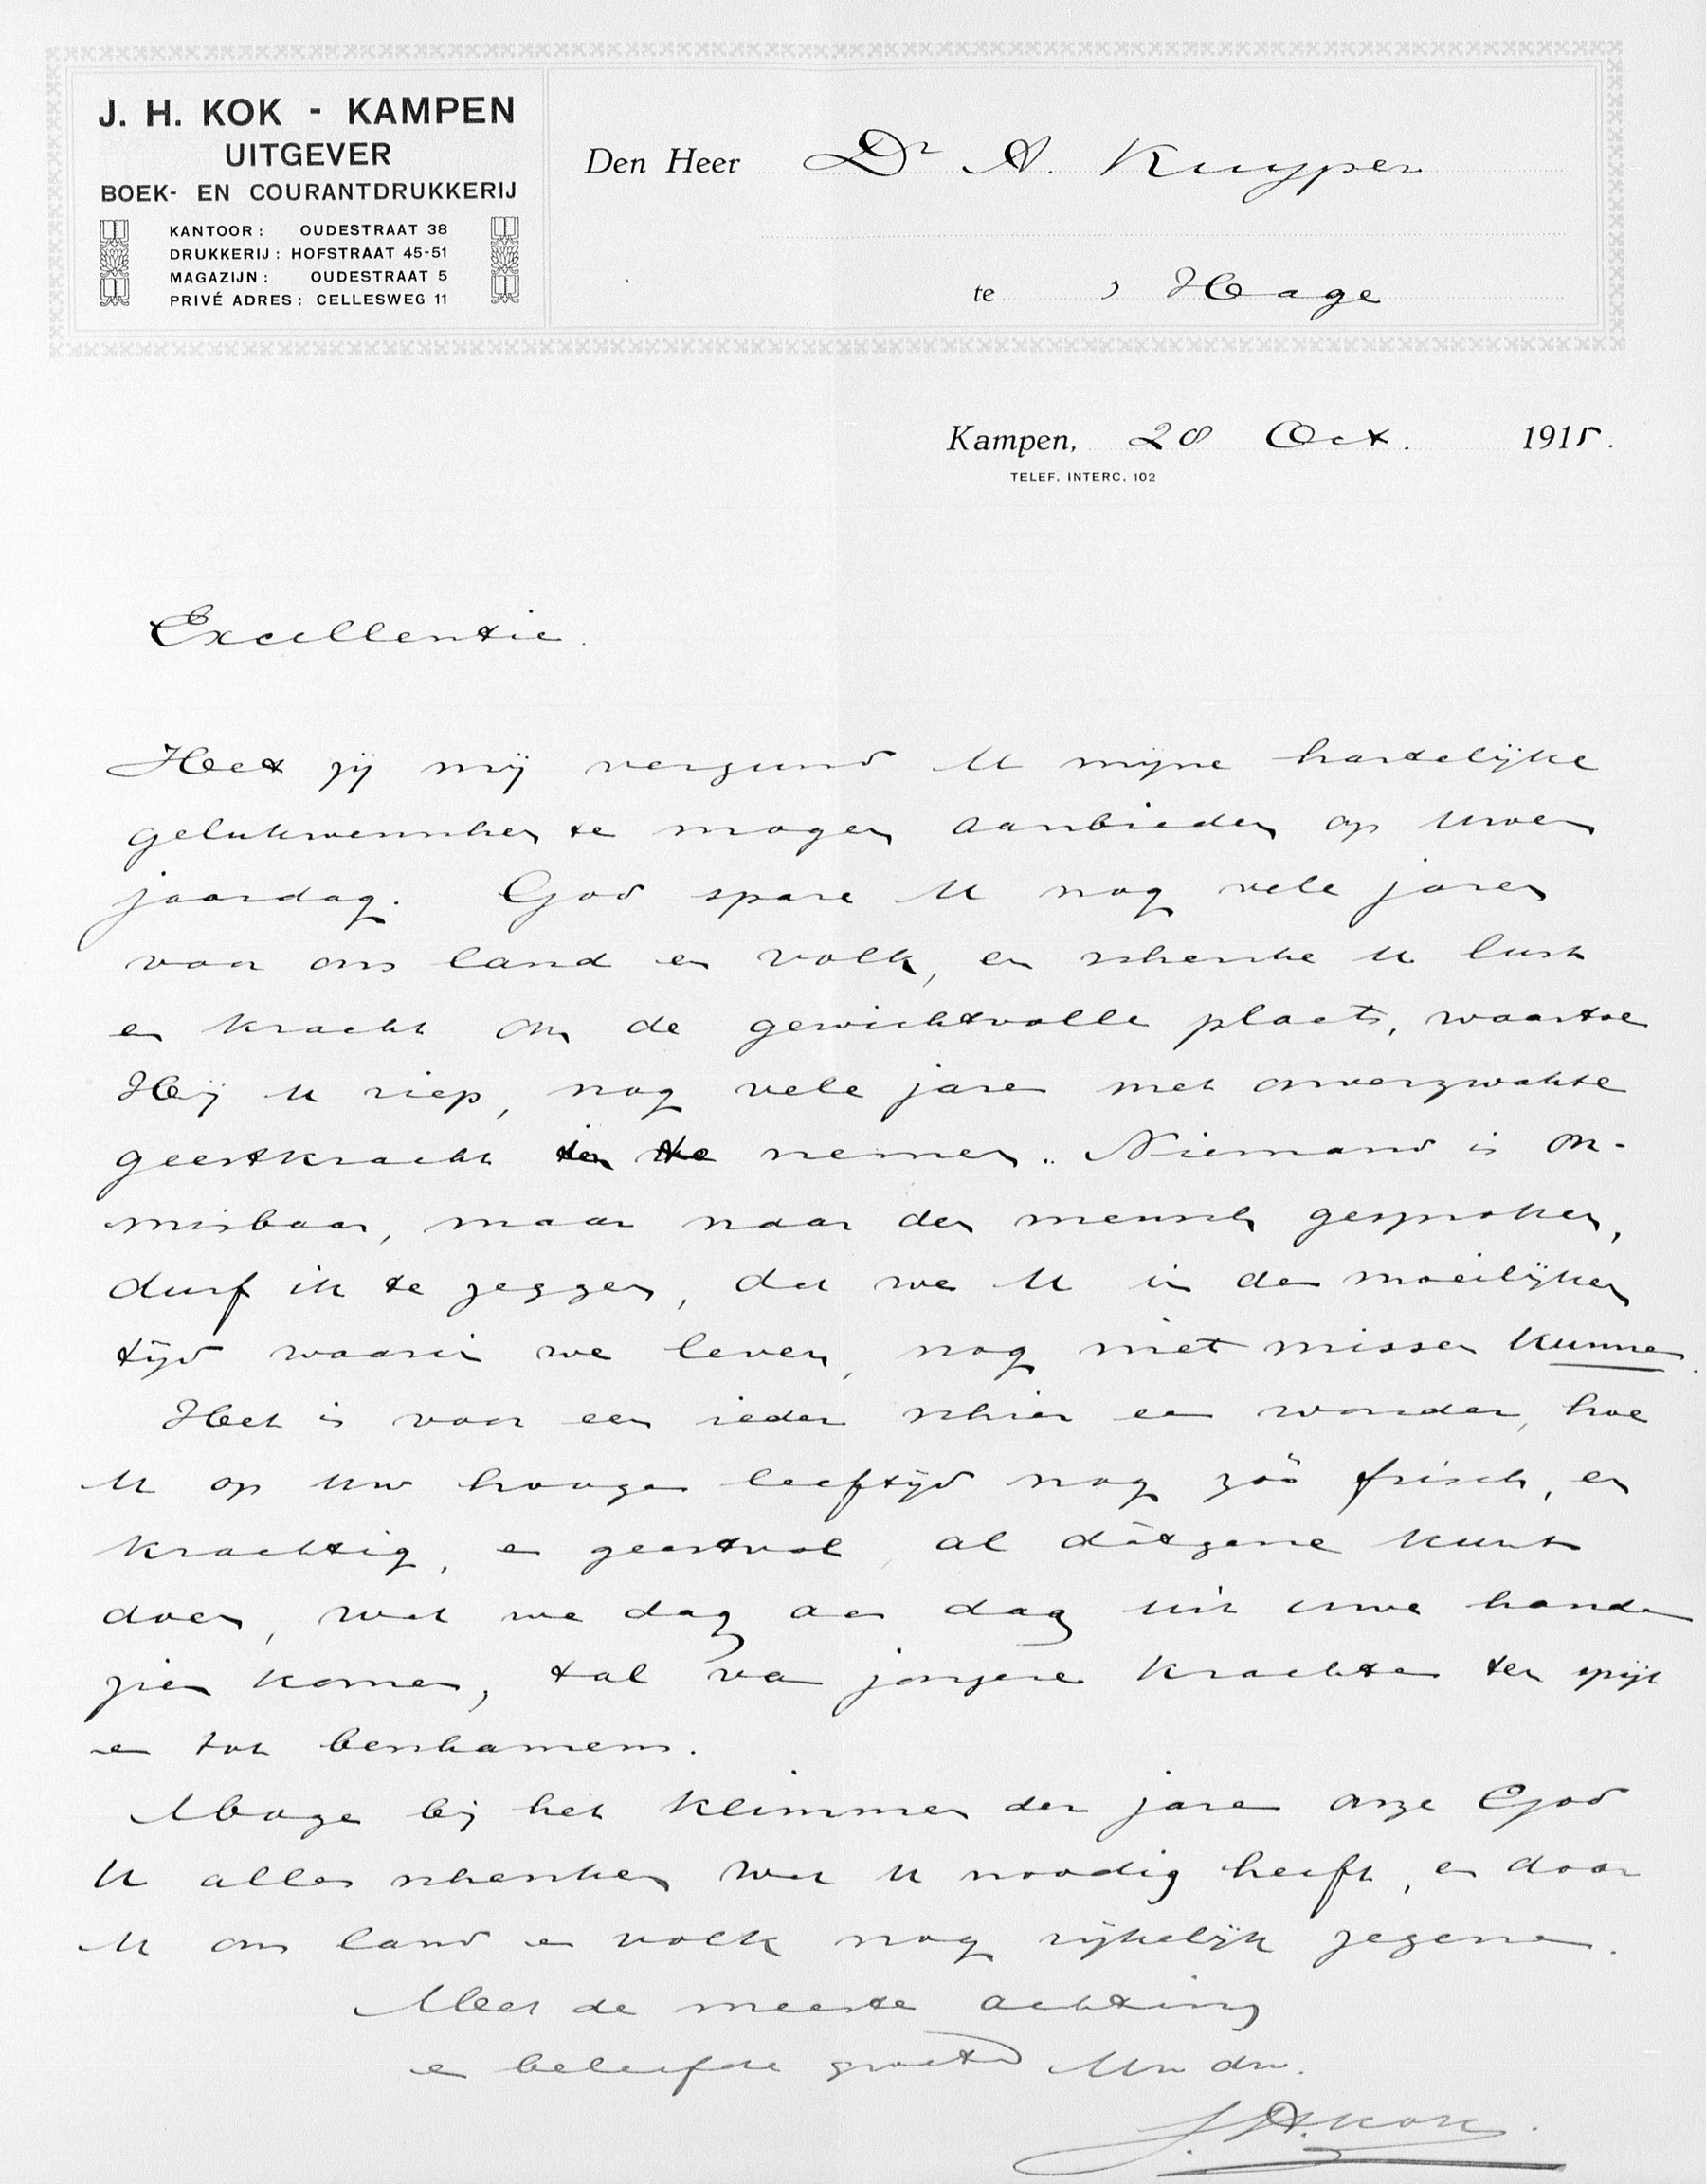 J. H. KOK - KAMPEN
UITGEVER
BOEK- EN COURANTDRUKKERIJ
KANTOOR: OUDESTRAAT 38
DRUKKERIJ: HOFSTRAAT 45-51
MAGAZIJN: OUDESTRAAT 5
PRIVÉ ADRES: CELLESWEG 11
Den Heer Dr A. Kuyper
te 's Hage
Kampen, 28 Oct. 1915.
TELEF. INTERC. 102
Excellentie.
Het zij mij vergund U mijne hartelijke
gelukwenschen te mogen aanbieden op Uwen
jaardag. God spare U nog vele jaren
voor ons land en volk, en schenke U lust
en kracht om de gewichtvolle plaats, waartoe
Hij U riep, nog vele jaren met onverzwakte
geestkracht in te nemen. Niemand is on-
misbaar, maar naar den mensch gesproken,
durf ik te zeggen, dat we U in den moeilijken
tijd waarin we leven, nog niet missen kunnen.
Het is voor een ieder schier een wonder, hoe
U op Uw hoogen leeftijd nog zóó frisch, en
krachtig, en geestvol, al dàtgene kunt
doen, wat we dag aan dag uit Uwe handen
zien komen, tal van jongere krachten ten spijt
en tot beschamens.
Moge bij het klimmen der jaren onze God
U alles schenken wat U noodig heeft, en door
U ons land en volk nog rijkelijk zegenen.
Met de meeste achting
en beleefde groeten Uw dw.
J. H. Kok.